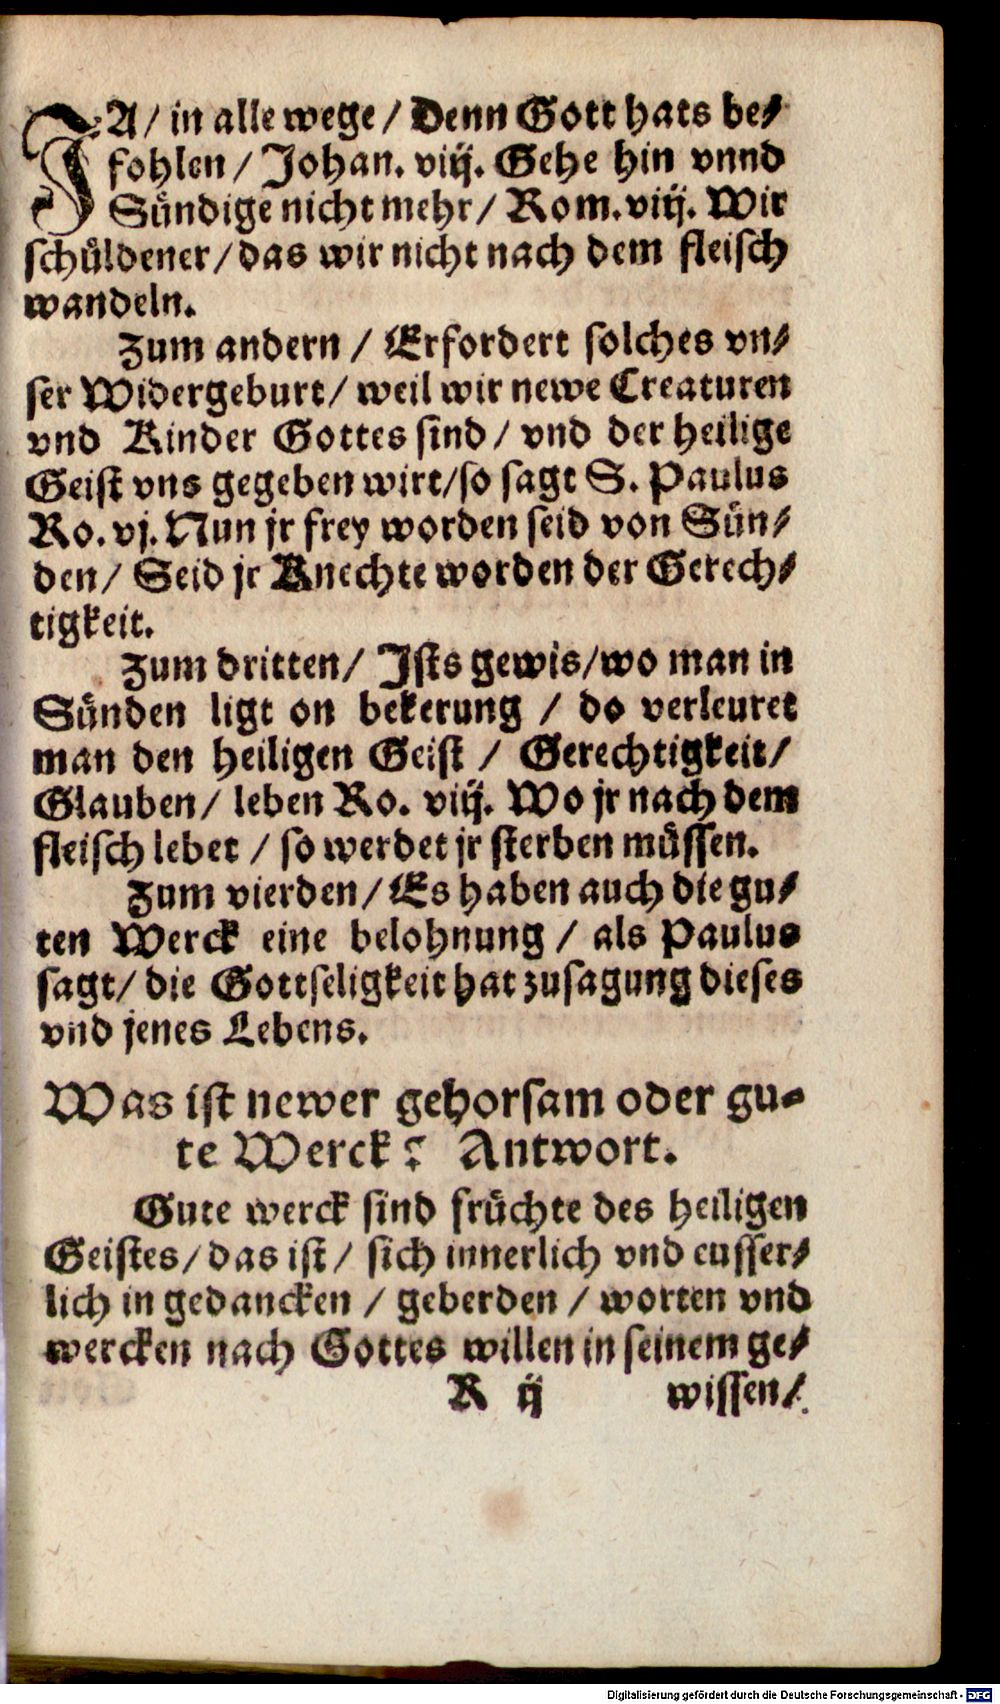 JA/ in alle wege/ Denn Gott hats be⸗
fohlen/ Johan. viij. Gehe hin vnnd
Sündige nicht mehr/ Rom. viij. Wir
schüldener/ das wir nicht nach dem fleisch
wandeln.
Zum andern/ Erfordert solches vn⸗
ser Widergeburt/ weil wir newe Creaturen
vnd Kinder Gottes sind/ vnd der heilige
Geist vns gegeben wirt/ so sagt S. Paulus
Ro. vj. Nun jr frey worden seid von Sün⸗
den/ Seid jr Knechte worden der Gerech⸗
tigkeit.
Zum dritten/ Ists gewis/ wo man in
Sünden ligt on bekerung/ do verleuret
man den heiligen Geist/ Gerechtigkeit/
Glauben/ leben Ro. viij. Wo jr nach dem
fleisch lebet/ so werdet jr sterben müssen.
Zum vierden/ Es haben auch die gu⸗
ten Werck eine belohnung/ als Paulus
sagt/ die Gottseligkeit hat zusagung dieses
vnd jenes Lebens.
Was ist newer gehorsam oder gu⸗
te Werck? Antwort.
Gute werck sind früchte des heiligen
Geistes/ das ist/ sich innerlich vnd eusser⸗
lich in gedancken/ geberden/ worten vnd
wercken nach Gottes willen in seinem ge⸗
R ij wissen/
Digitalisierung gefördert durch die Deutsche Forschungsgemeinschaft - DFG